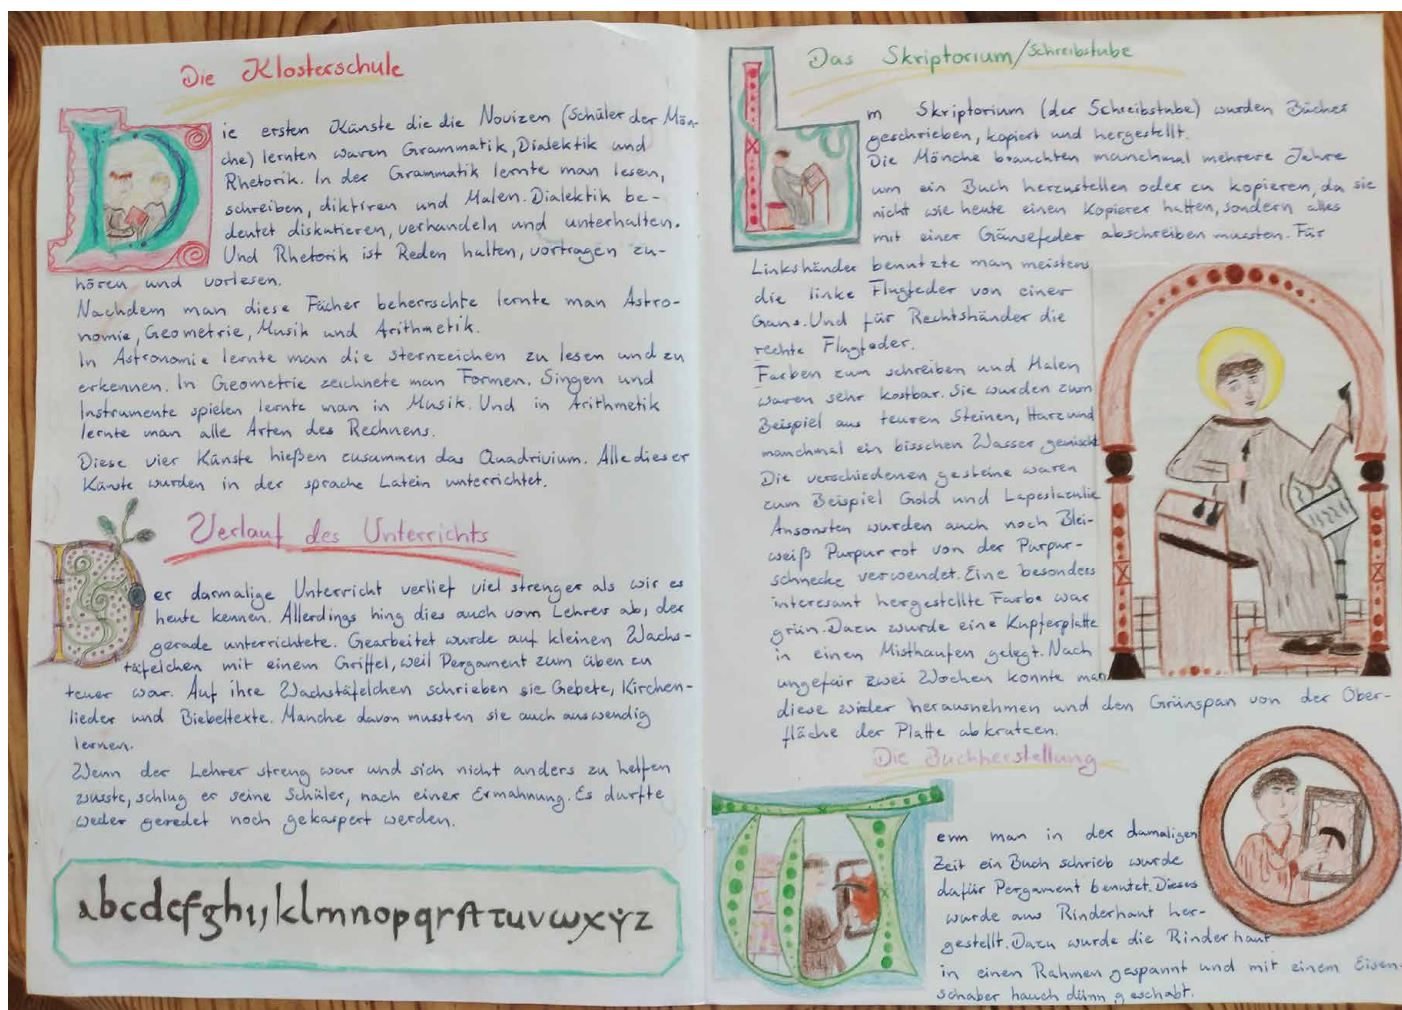 Die Klosterschule
Die ersten Künste die die Novizen (Schüler der Mön-
che) lernten waren Grammatik, Dialektik und
Rhetorik. In der Grammatik lernte man lesen,
schreiben, diktiren und Malen. Dialektik be-
deutet diskutieren, verhandeln und unterhalten.
Und Rhetorik ist Reden halten, vortragen zu-
hören und vorlesen.
Nachdem man diese Fächer beherrschte lernte man Astro-
nomie, Geometrie, Musik und Arithmetik.
In Astronomie lernte man die sternzeichen zu lesen und zu
erkennen. In Geometrie zeichnete man Formen. Singen und
Instrumente spielen lernte man in Musik. Und in Arithmetik
lernte man alle Arten des Rechnens.
Diese vier Künste hießen zusammen das Quadrivium. Alle dieser
Künste wurden in der sprache Latein unterrichtet.
Verlauf des Unterrichts
Der damalige Unterricht verlief viel strenger als wir es
heute kennen. Allerdings hing dies auch vom Lehrer ab, der
gerade unterrichtete. Gearbeitet wurde auf kleinen Wachs-
täfelchen mit einem Griffel, weil Pergament zum üben zu
teuer war. Auf ihre Wachstäfelchen schrieben sie Gebete, Kirchen-
lieder und Biebeltexte. Manche davon mussten sie auch auswendig
lernen.
Wenn der Lehrer streng war und sich nicht anders zu helfen
wusste, schlug er seine Schüler, nach einer Ermahnung. Es durfte
weder geredet noch gekaspert werden.
abcdefghijklmnopqrstuvwxyz
Das Skriptorium/Schreibstube
Im Skriptorium (der Schreibstube) wurden Bücher
geschrieben, kopiert und hergestellt.
Die Mönche brauchten manchmal mehrere Jahre
um ein Buch herzustellen oder zu kopieren, da sie
nicht wie heute einen Kopierer hatten, sondern alles
mit einer Gänsefeder abschreiben mussten. Für
Linkshänder benutzte man meistens
die linke Flugfeder von einer
Gans. Und für Rechtshänder die
rechte Flugfeder.
Farben zum schreiben und Malen
waren sehr kostbar. Sie wurden zum
Beispiel aus teuren Steinen, Harz und
manchmal ein bisschen Wasser gemischt
Die verschiedenen gesteine waren
zum Beispiel Gold und Lapeslazulie
Ansonsten wurden auch noch Blei-
weiß Purpurrot von der Purpur-
schnecke verwendet. Eine besonders
interesant hergestellte Farbe war
grün. Dazu wurde eine Kupferplatte
in einen Misthaufen gelegt. Nach
ungefär zwei Wochen konnte man
diese wieder herausnehmen und den Grünspan von der Ober-
fläche der Platte abkratzen.
Die Buchherstellung
Wenn man in der damaligen
Zeit ein Buch schrieb wurde
dafür Pergament benutzt. Dieses
wurde aus Rinderhaut her-
gestellt. Dazu wurde die Rinderhaut
in einen Rahmen gespannt und mit einem Eisen-
schaber hauch dünn geschabt.